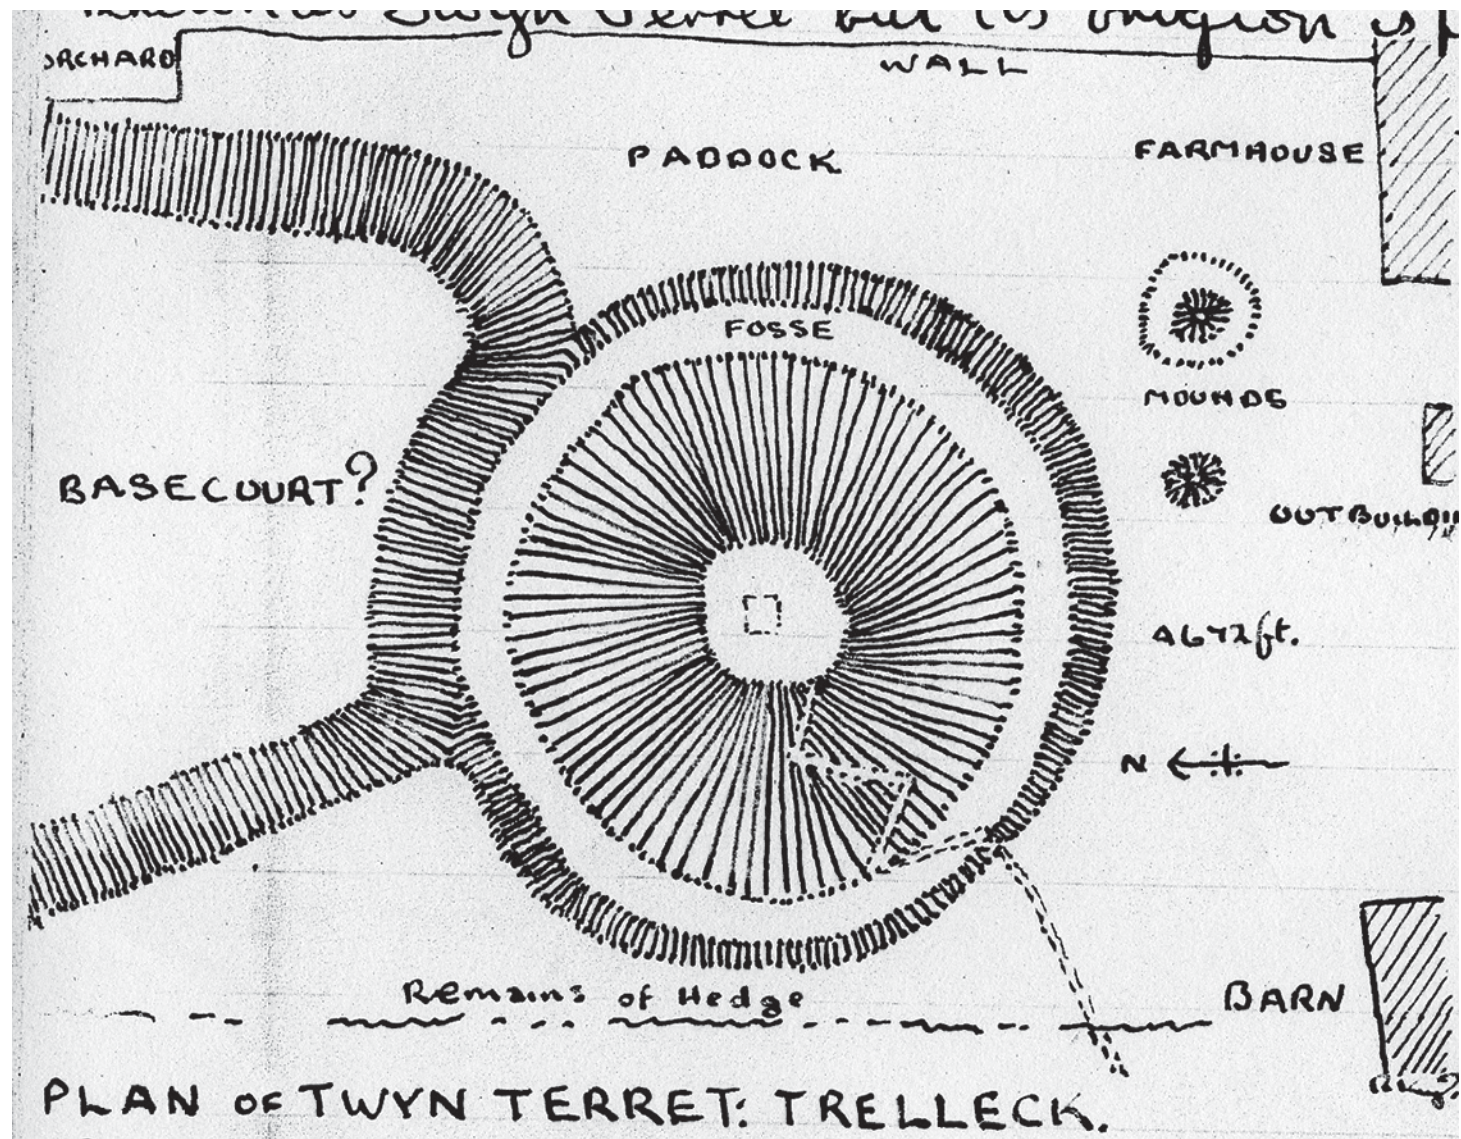 Twyn Terret but its is
ORCHARD
WALL
PADDOCK
FARMHOUSE
FOSSE
MOUNDS
BASECOURT?
OUTBUILDIN
672ft.
N
Remains of Hedge
BARN
PLAN OF TWYN TERRET: TRELLECK.